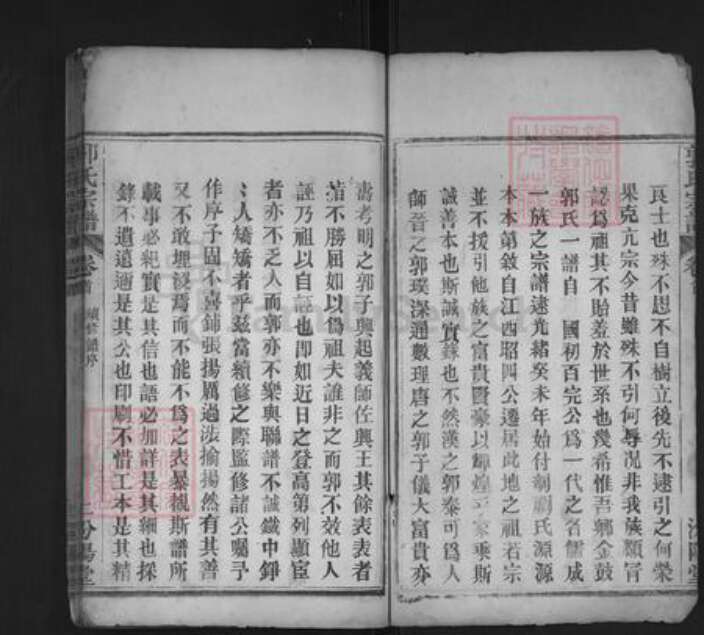 良士也殊不思不自樹立後先不逮引之何榮
果克亢宗今昔雖殊不引何辱况非我族類冐
認爲祖其不貽羞於世系也幾希惟吾鄉金鼓
郭氏一譜自　國初百完公爲一代之名儒成
一族之宗譜逮光緒癸未年始付剞劂氏源源
本本第敘自江西昭四公遷居此地之祖若宗
並不援引他族之富貴賢豪以輝煌家乘斯
誠善本也斯誠實錄也不然漢之郭泰可爲人
師晉之郭璞深通數理唐之郭子儀大富貴亦
壽考明之郭子興起義師佐興王其餘表表者
㨂不勝屈如以爲祖夫誰非之而郭不效他人
誣乃祖以自誣也即如近日之登高第列顯宦
者亦不乏人而郭亦不樂與聯譜不誠鐵中錚
〻人矯矯者乎兹當續修之際監修諸公囑予
作序予固不喜鋪張揚厲過涉揄揚然有其善
又不敢埋沒焉而不能不爲之表暴觀斯譜所
載事必紀實是其信也語必加詳是其細也採
錄不遺遠邇是其公也印刷不惜工本是其精
郭氏宗譜　卷首　續修譜序　汾陽堂